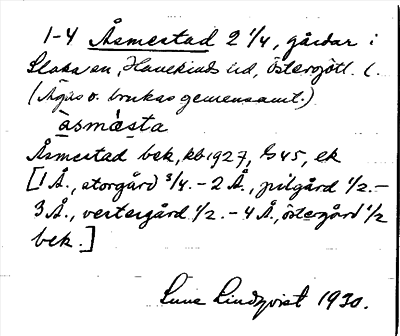 1-4 Åsmestad 2 1/4, gårdar i
Slaka sn, Hanekinds hd, Östergötl. l.
(Äges o. brukas gemensamt.)
åsmèsta
Åsmestad bek, kb 1927, GS 45, ek
[1 Å., storgård 3/4. - 2 Å., pilgård 1/2. -
3 Å., vestergård 1/2. - 4 Å., östergård 1/2
bek.]
Sune Lindqvist 1930.